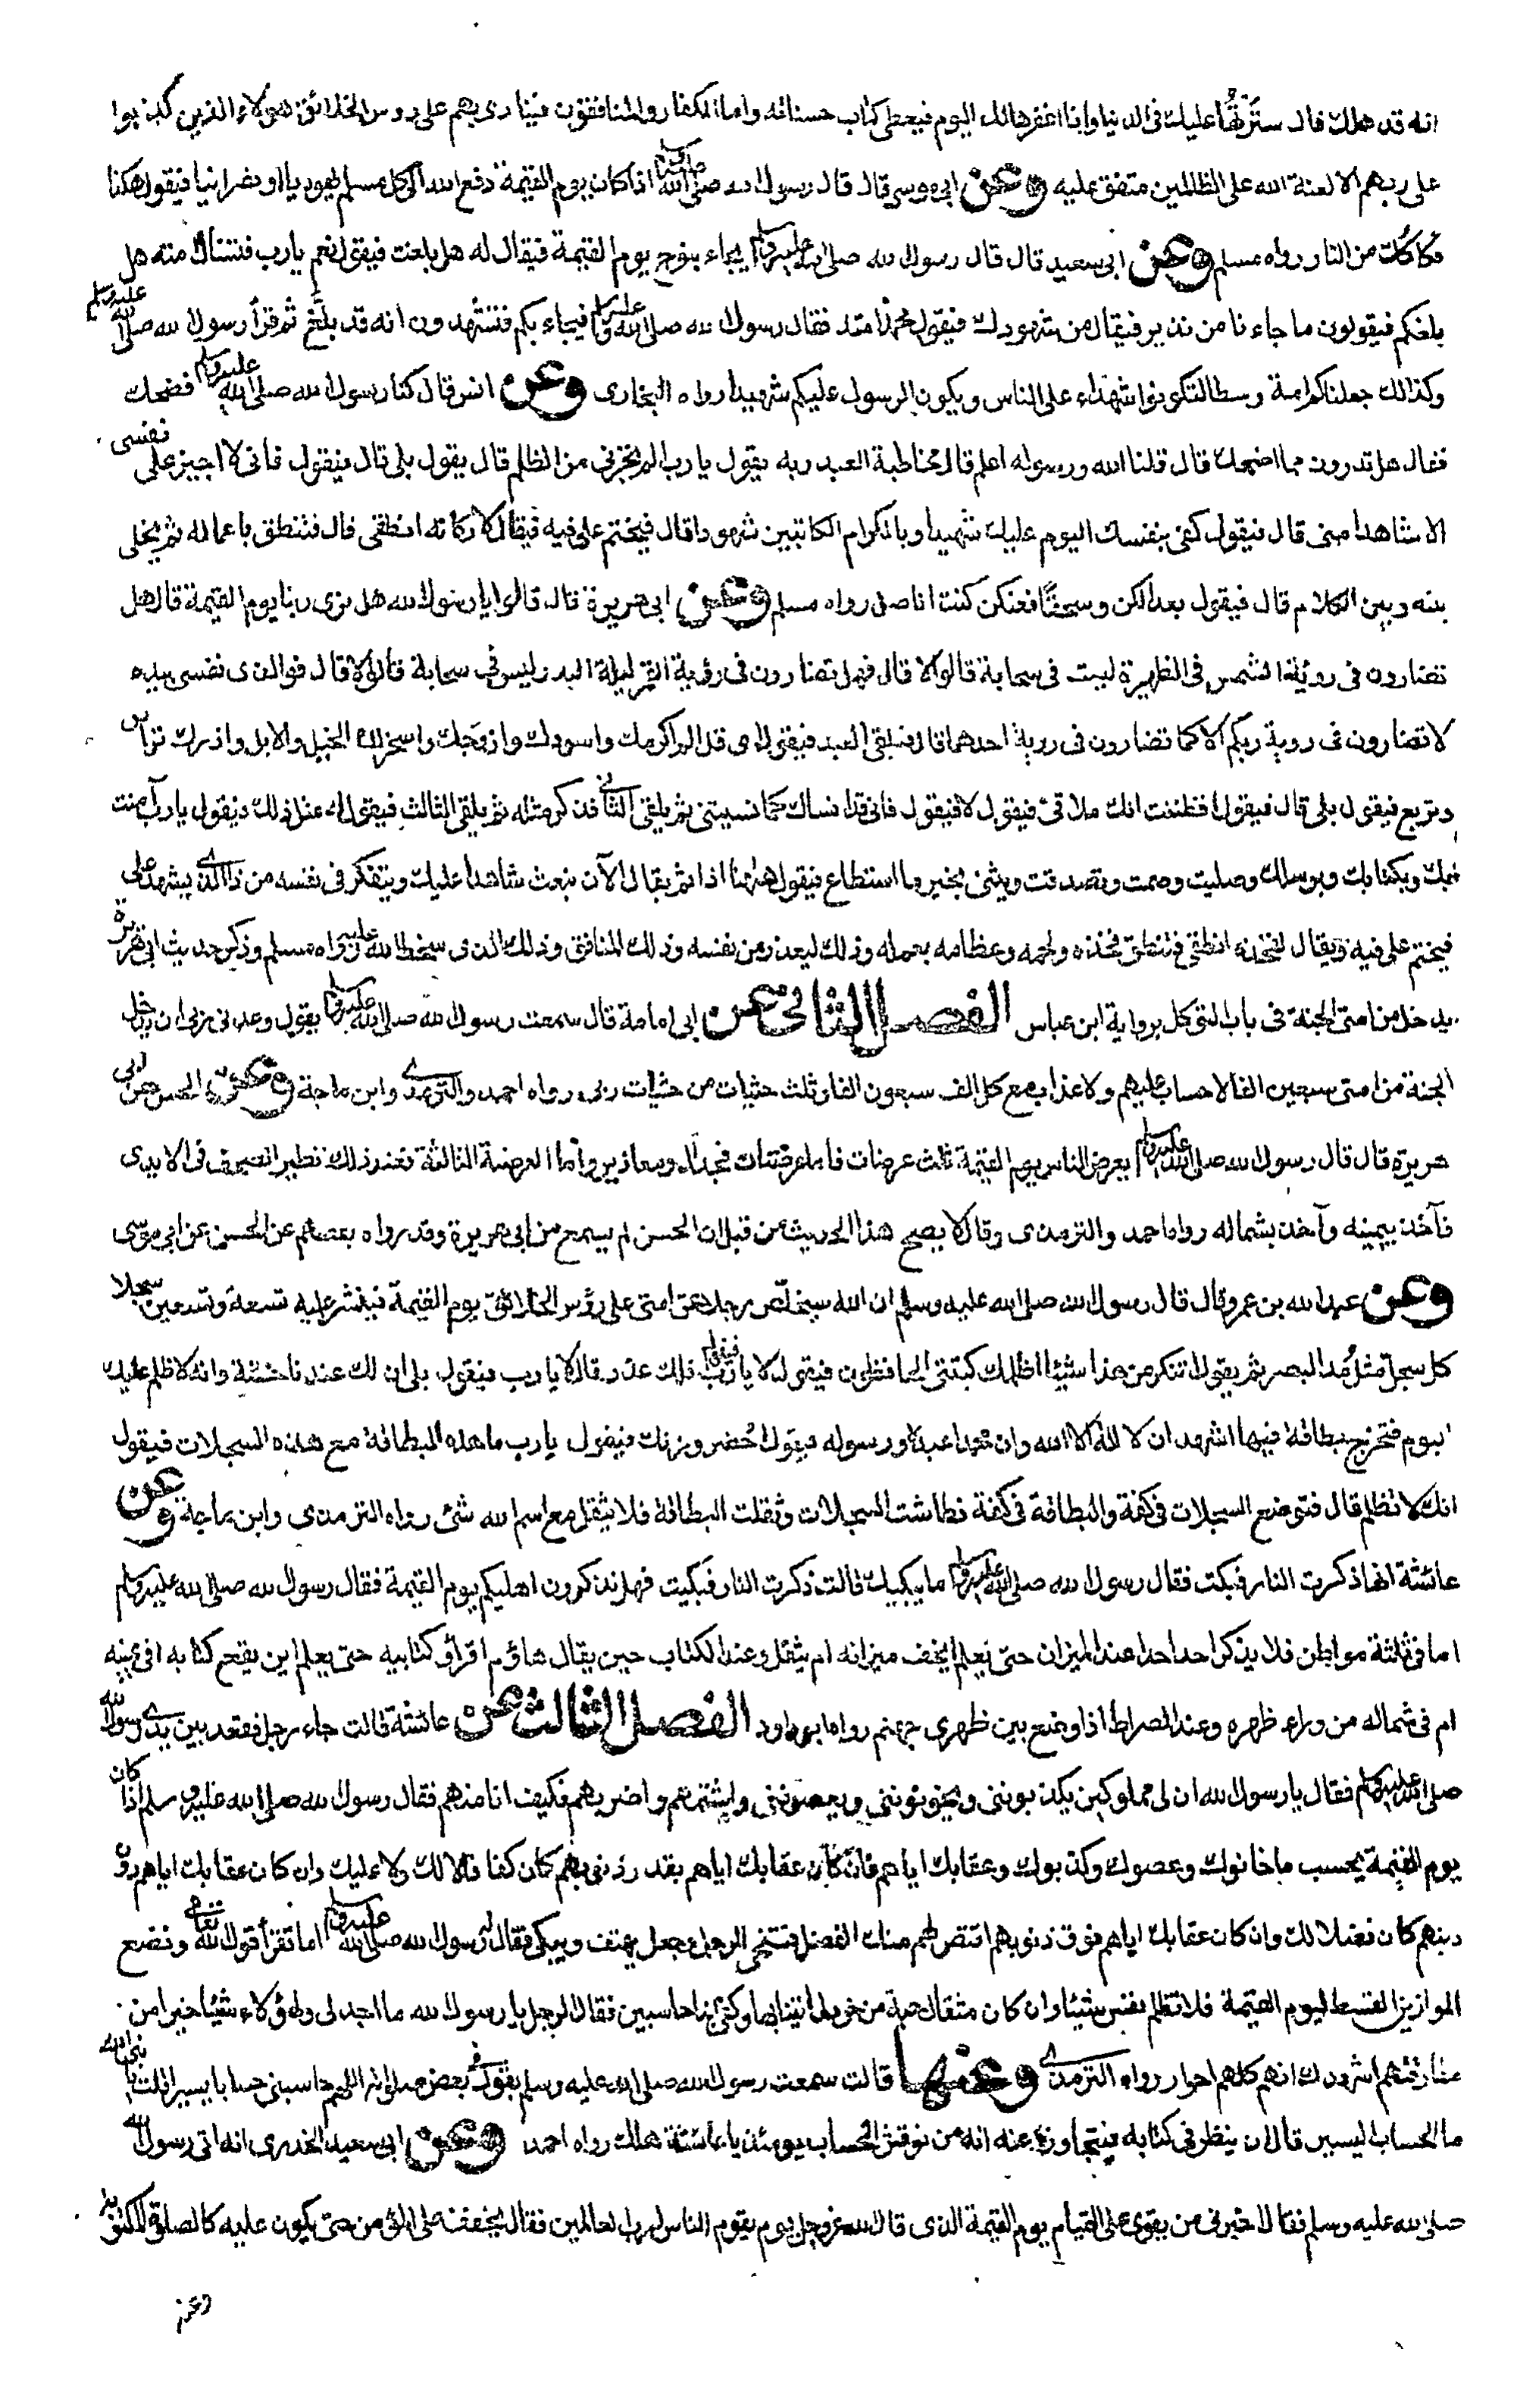 انه قد هلك قال سَتَرْتُهَا عليك فى الدنيا وانا اغفرها لك اليوم فيعطى كتاب حسناته واما الكفار والمنافقون فينادى بهم على روس الخلائق هولاء الذين كذبوا
على ربهم الا لعنة الله على الظلمين متفق عليه وعن ابى موسى قال قال رسول الله صلى الله عليه وسلم اذا كان يوم القيمة دفع الله الى كل مسلم يهوديا او نصرانيا فيقول هكذا
فكاكك من النار رواه مسلم وعن ابى سعيد قال قال رسول الله صلى الله عليه وسلم يجاء بنوح يوم القيمة فيقال له هل بلغت فيقول نعم يا رب فتسأل امته هل
بلغكم فيقولون ما جاءنا من نذير فيقال من شهودك فيقول محمد وامته فقال رسول الله صلى الله عليه وسلم فيجاء بكم فتشهدون انه قد بلّغ ثم قرأ رسول الله صلى الله عليه وسلم
وكذالك جعلناكم امة وسطا لتكونوا شهداء على الناس ويكون الرسول عليكم شهيدا رواه البخارى وعن انس قال كنا رسول الله صلى الله عليه وسلم فضحك
فقال هل تدرون مما اضحك قال قلنا الله ورسوله اعلم قال مخاطبة العبد ربه يقول يا رب الم تجرنى من الظلم قال يقول بلى قال فيقول فانى لا اجيز على نفسى
الا شاهدا منى قال فيقول كفى بنفسك اليوم عليك شهيدا وبالكرام الكاتبين شهودا قال فيختم على فيه فيقال لاركانه انطقى قال فتنطق باعماله ثم يخلى
بينه وبين الكلام قال فيقول بعدا لكن وسحقًا فعنكن كنت اناضل رواه مسلم وعن ابى هريرة قال قالوا يا رسول الله هل نرى ربنا يوم القيمة قال هل
تضارون فى رؤية الشمس فى الظهيرة ليست فى سحابة قالوا لا قال فهل تضارون فى رؤية القمر ليلة البدر ليس فى سحابة قالوا لا قال فوالذى نفسى بيده
لا تضارون فى روية ربكم الا كما تضارون فى روية احدهما قال فيلقى العبد فيقول اى فل الم اكرمك واسودك وازوجك واسخر لك الخيل والابل واذرك ترأس
وتربع فيقول بلى قال فيقول افظننت انك ملاقى فيقول لا فيقول فانى قد انساك كما نسيتنى ثم يلقى الثانى فذكر مثله ثم يلقى الثالث فيقول له مثل ذلك فيقول يا رب آمنت
بك وبكتابك وبرسلك وصليت وصمت وتصدقت ويثنى بخير ما استطاع فيقول ههنا اذا ثم يقال الآن نبعث شاهدا عليك ويتفكر فى نفسه من ذا الذى يشهد على
فيختم على فيه ويقال لفخذه انطقى فتنطق فخذه ولحمه وعظامه بعمله وذلك ليعذر من نفسه وذلك المنافق وذلك الذى سخط الله عليه رواه مسلم وذكر حديث ابى هريرة
يدخل من امتى الجنة فى باب التوكل برواية ابن عباس الفصل الثانى عن ابى امامة قال سمعت رسول الله صلى الله عليه وسلم يقول وعدنى ربى ان يدخل
الجنة من امتى سبعين الفا لا حساب عليهم ولا عذاب مع كل الف سبعون الفا وثلث حثيات من حثيات ربى رواه احمد والترمذى وابن ماجة وعن الحسن عن ابى
هريرة قال قال رسول الله صلى الله عليه وسلم يعرض الناس يوم القيمة ثلث عرضات فاما عرضتان فجدال ومعاذير واما العرضة الثالثة فعند ذلك تطير الصحف فى الايدى
فآخذ بيمينه وآخذ بشماله رواه احمد والترمذى وقال لا يصح هذا الحديث من قبل ان الحسن لم يسمع من ابى هريرة وقد رواه بعضهم عن الحسن عن ابى موسى
وعن عبد الله بن عمرو قال قال رسول الله صلى الله عليه وسلم ان الله سيخلّص رجلا من امتى على رؤس الخلائق يوم القيمة فينشر عليه تسعة وتسعين سجلا
كل سجل مثل مد البصر ثم يقول اتنكر من هذا شيئا اظلمك كتبتى الحافظون فيقول لا يا رب فيقول افلك عذر قال لا يا رب فيقول بلى ان لك عندنا حسنة وانه لا ظلم عليك
اليوم فتخرج بطاقة فيها اشهد ان لا اله الا الله وان محمدا عبده ورسوله فيقول احضر وزنك فيقول يا رب ما هذه البطاقة مع هذه السجلات فيقول
انك لا تظلم قال فتوضع السجلات فى كفة والبطاقة فى كفة فطاشت السجلات وثقلت البطاقة فلا يثقل مع اسم الله شئ رواه الترمذى وابن ماجة وعن
عائشة انها ذكرت النار فبكت فقال رسول الله صلى الله عليه وسلم ما يبكيك قالت ذكرت النار فبكيت فهل تذكرون اهليكم يوم القيمة فقال رسول الله صلى الله عليه وسلم
اما فى ثلثة مواطن فلا يذكر احد احدا عند الميزان حتى يعلم ايخف ميزانه ام يثقل وعند الكتاب حين يقال هاؤم اقرأو كتابيه حتى يعلم اين يقع كتابه افى يمينه
ام فى شماله من وراء ظهره وعند الصراط اذا وضع بين ظهرى جهنم رواه ابو داود الفصل الثالث عن عائشة قالت جاء رجل فقعد بين يدى رسول الله
صلى الله عليه وسلم فقال يا رسول الله ان لى مملوكين يكذبوننى ويخونوننى ويعصوننى واشتمهم واضربهم فكيف انا منهم فقال رسول الله صلى الله عليه وسلم اذا كان
يوم القيمة يحسب ما خانوك وعصوك وكذبوك وعقابك اياهم فان كان عقابك اياهم بقدر ذنوبهم كان كفافا لا لك ولا عليك وان كان عقابك اياهم دون
ذنبهم كان فضلا لك وان كان عقابك اياهم فوق ذنوبهم اقتص لهم منك الفضل فتنحى الرجل وجعل يهتف ويبكى فقال له رسول الله صلى الله عليه وسلم اما تقرأ قول الله تعالى ونضع
الموازين القسط ليوم القيمة فلا تظلم نفس شيئا وان كان مثقال حبة من خردل اتينا بها وكفى بنا حاسبين فقال الرجل يا رسول الله ما اجد لى ولهؤلاء شيئا خيرا من
مفارقتهم اشهدك انهم كلهم احرار رواه الترمذى وعنها قالت سمعت رسول الله صلى الله عليه وسلم يقول فى بعض صلوته اللهم حاسبنى حسابا يسيرا قلت يا نبى الله
ما الحساب اليسير قال ان ينظر فى كتابه فيتجاوز عنه انه من نوقش الحساب يومئذ يا عائشة هلك رواه احمد وعن ابى سعيد الخدرى انه اتى رسول الله
صلى الله عليه وسلم فقال اخبرنى من يقوى على القيام يوم القيمة الذى قال الله عز وجل يوم يقوم الناس لرب العالمين فقال يخفف على المؤمن حتى يكون عليه كالصلوة المكتوبة
وعن